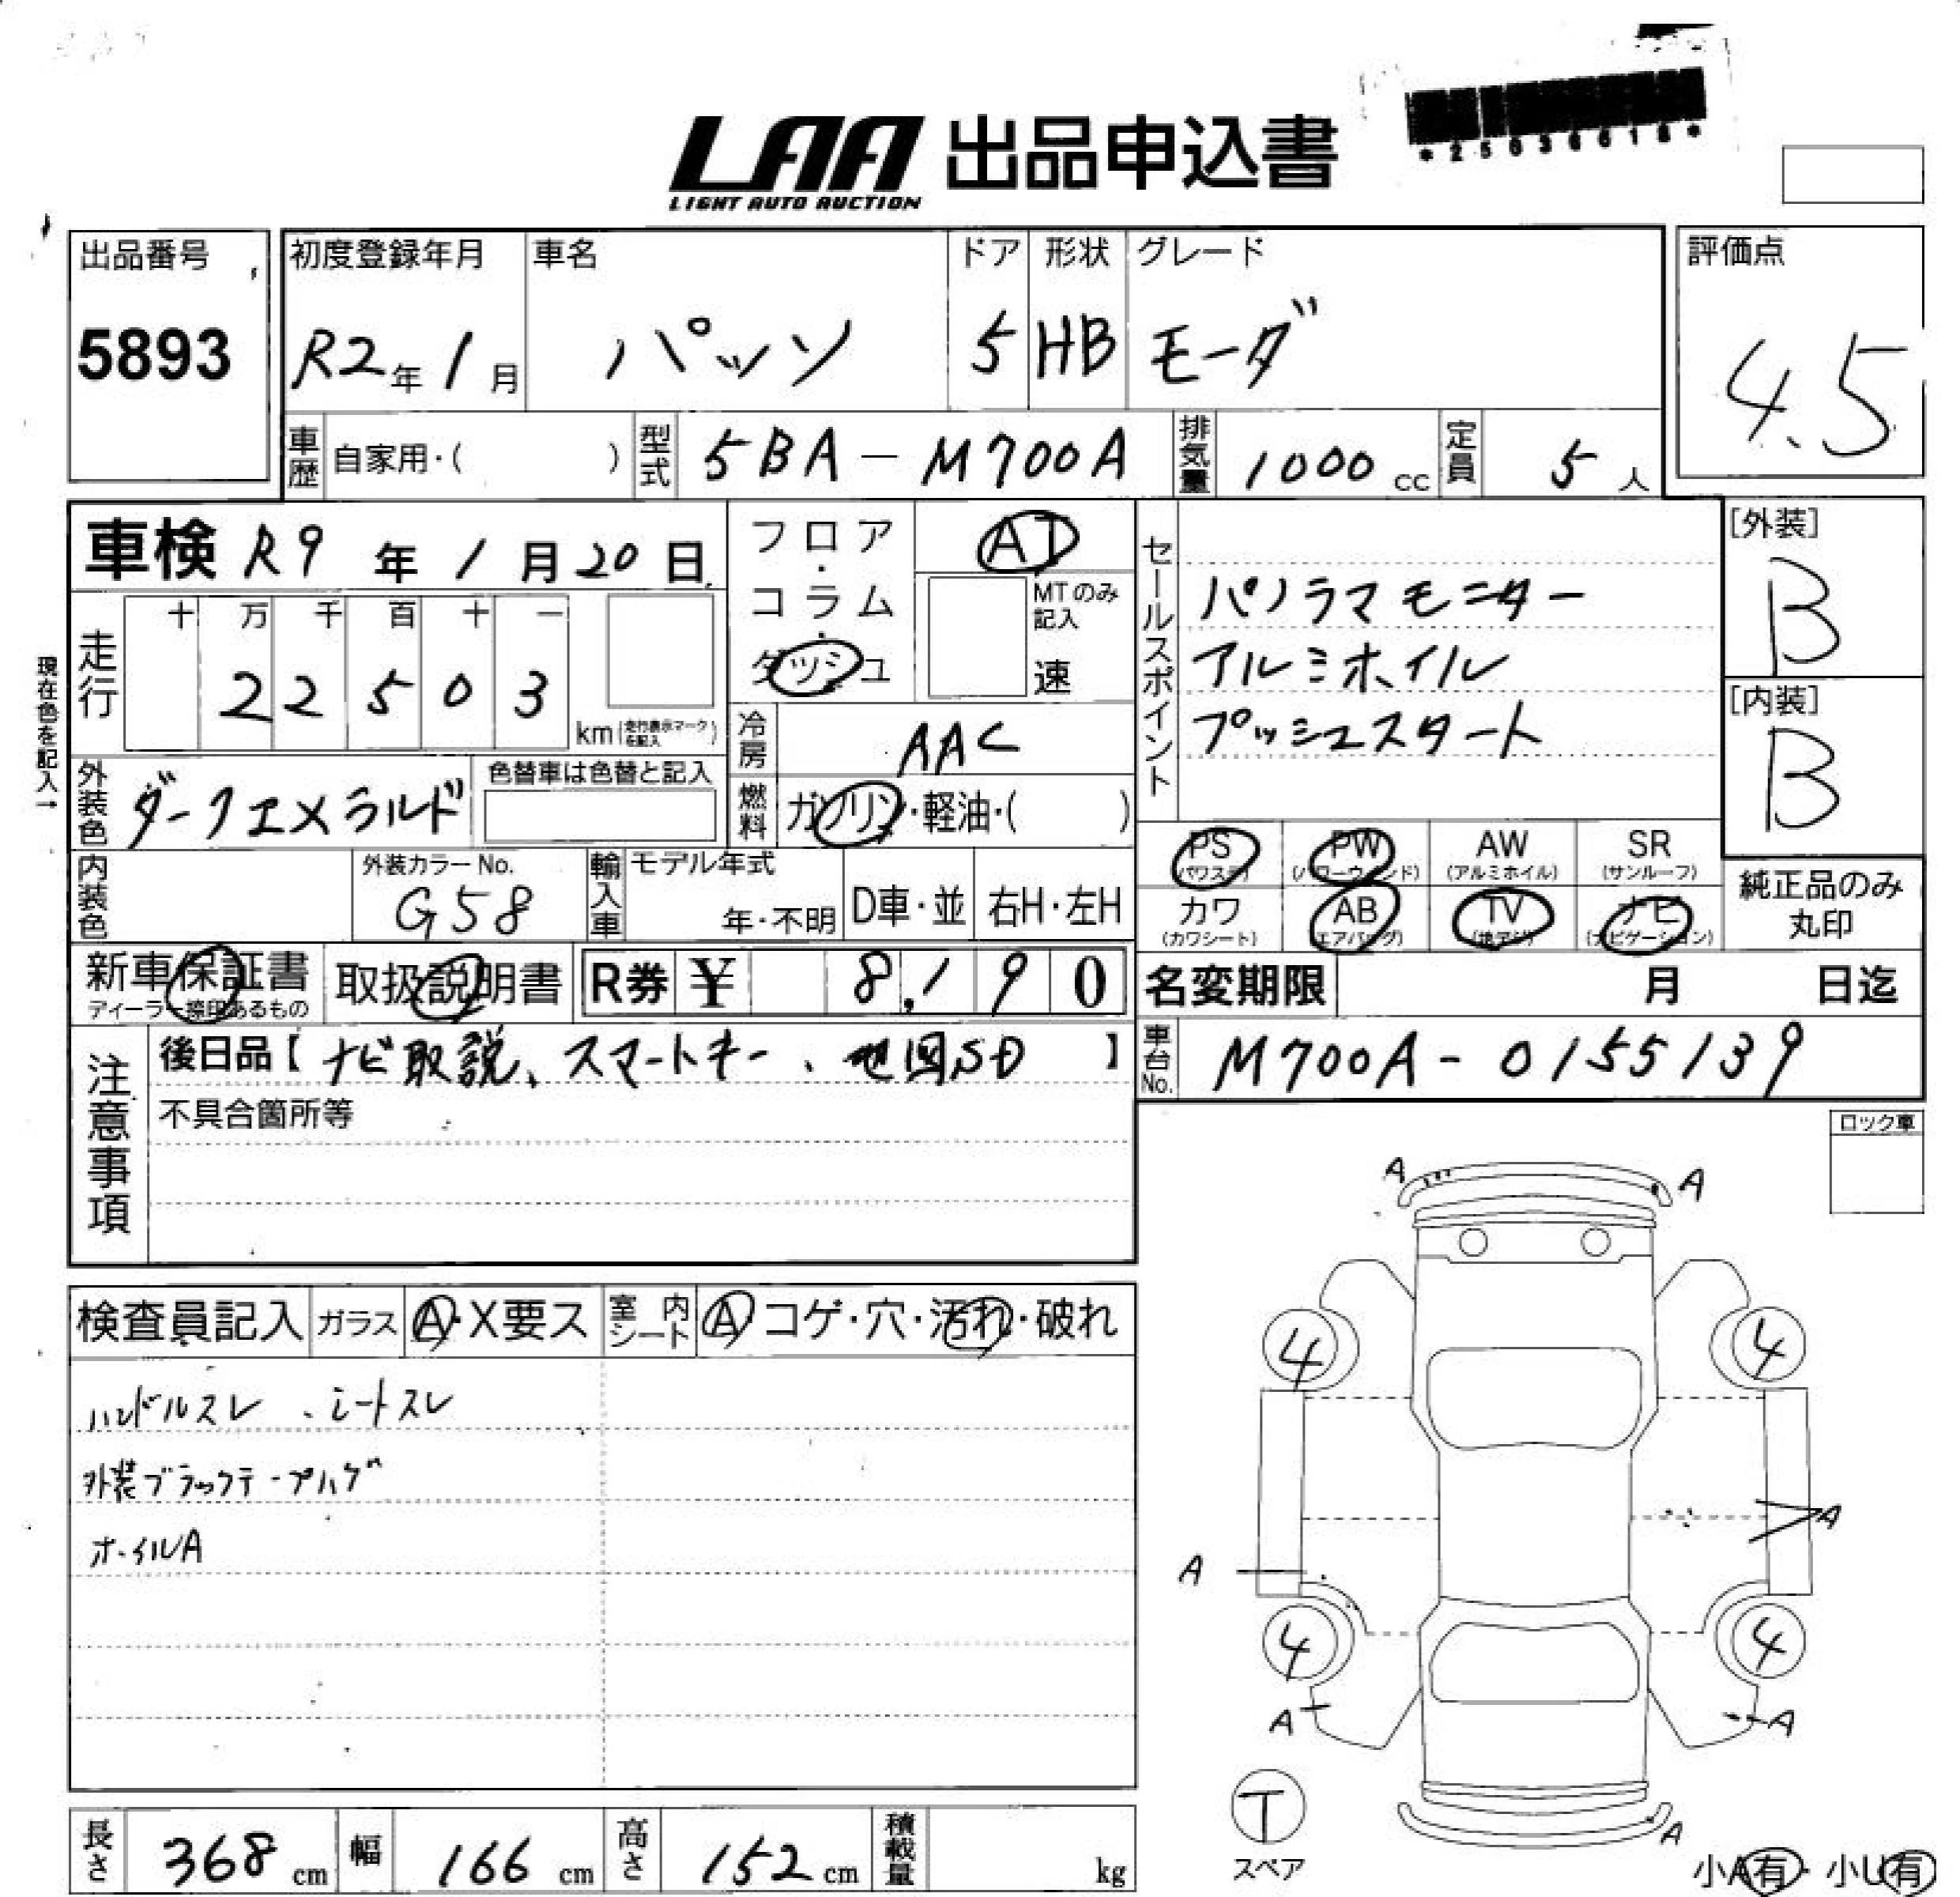 *25036618*
LAA 出品申込書
LIGHT AUTO AUCTION
出品番号
5893
初度登録年月
R2年1月
車名
パッソ
ドア
5
形状
HB
グレード
モーダ
評価点
4.5
車歴 自家用・( )
型式 5BA-M700A
排気量 1000 cc
定員 5 人
車検 R9年1月20日
フロア・コラム・ダッシュ
AT
MTのみ記入
速
セールスポイント
パノラマモニター
アルミホイル
プッシュスタート
[外装]
B
[内装]
B
現在色を記入→
走行
十 万 千 百 十 一
2 2 5 0 3
km(走行表示マークを記入)
冷房 AAC
外装色 ダークエメラルド
色替車は色替と記入
燃料 ガソリン・軽油・( )
PS (パワステ)
PW (パワーウィンド)
AW (アルミホイル)
SR (サンルーフ)
カワ (カワシート)
AB (エアバッグ)
TV (地デジ)
ナビ (ナビゲーション)
純正品のみ丸印
内装色
外装カラーNo.
G58
輸入車
モデル年式
年・不明
D車・並
右H・左H
新車保証書
ディーラー捺印あるもの
取扱説明書
R券 ¥ 8,190
名変期限 月 日迄
注意事項
後日品【ナビ取説、スマートキー、地図SD】
不具合箇所等
車台No. M700A-0155139
ロック車
検査員記入
ガラス A・X要ス
室内シート A コゲ・穴・汚れ・破れ
ハンドルスレ、シートスレ
外装ブラックテープハゲ
ホイルA
A A
4 4
A
A
4 4
A A
T
スペア
A
小A有・小U有
長さ 368 cm
幅 166 cm
高さ 152 cm
積載量 kg